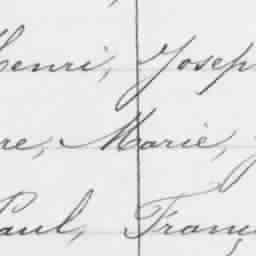 Henri, Josep
re, Marie, J
Paul, Franç